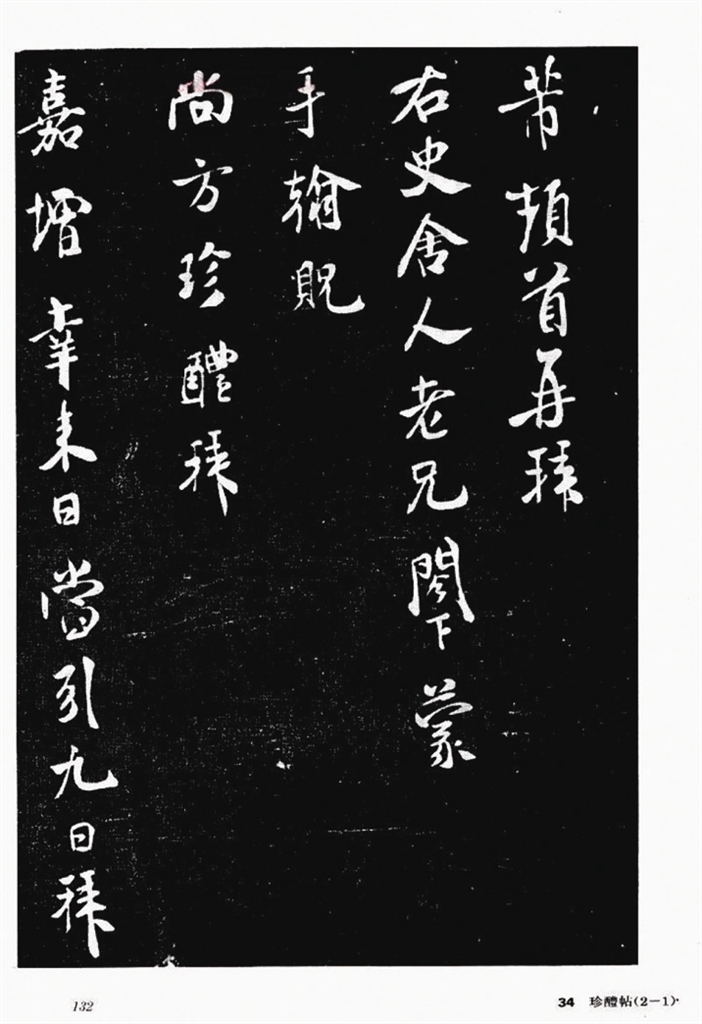 芾頓首再拜
右史舍人老兄閣下蒙
手翰貺
尚方珍醴拜
嘉增幸來日當引九日拜
132
34 珍醴帖(2-1)